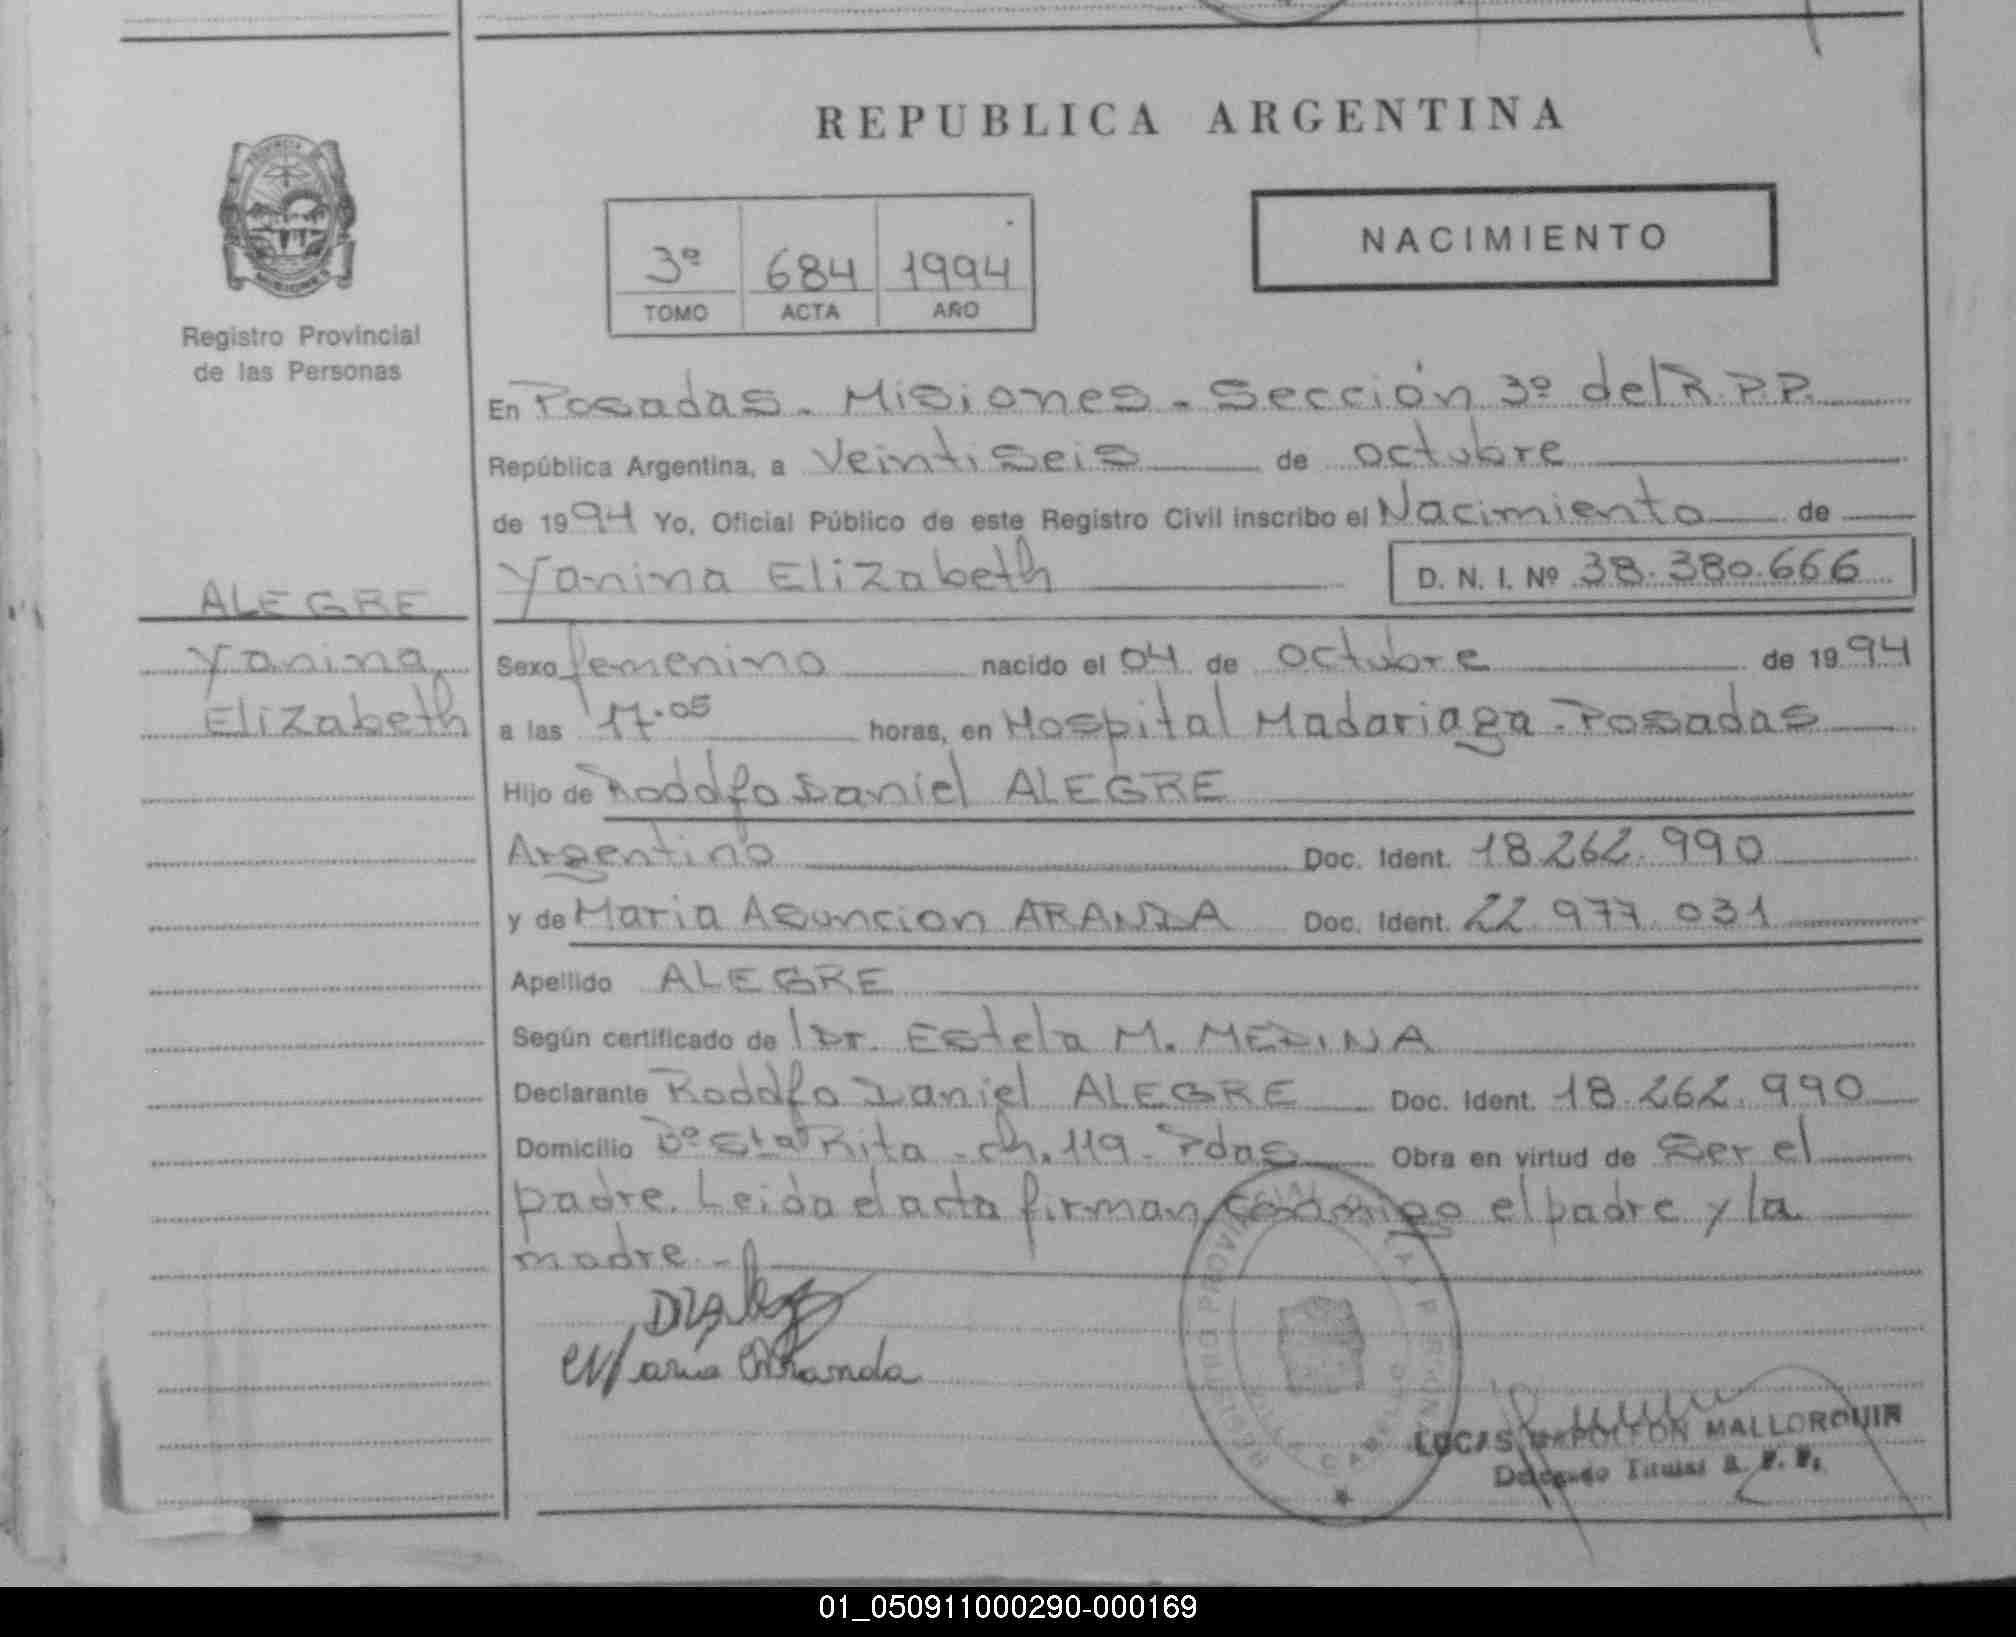 REPUBLICA ARGENTINA
NACIMIENTO
3º 684 1994
TOMO ACTA AÑO
Registro Provincial
de las Personas
En Posadas. Misiones. Sección 3º del R.P.P.
República Argentina, a Veintiseis de octubre
de 1994 Yo, Oficial Público de este Registro Civil inscribo el Nacimiento de
Yanina Elizabeth D. N. I. Nº 38.380.666
ALEGRE
Yanina
Elizabeth
Sexo femenino nacido el 04 de octubre de 1994
a las 17.05 horas, en Hospital Madariaga. Posadas
Hijo de Rodolfo Daniel ALEGRE
Argentino Doc. Ident. 18.262.990
y de Maria Asuncion ARANDA Doc. Ident. 22.977.031
Apellido ALEGRE
Según certificado de Dr. Estela M. MEDINA
Declarante Rodolfo Daniel ALEGRE Doc. Ident. 18.262.990
Domicilio Bº Sta Rita - ch. 119 - Pdas Obra en virtud de Ser el
padre. Leida el acta firman conmigo el padre y la
madre.-
Maria Aranda
LUCAS NAPOLEON MALLORQUIN
Delegado Titular R. P. P.
01_050911000290-000169